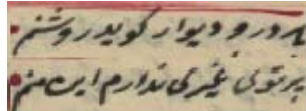 در و دیوار کوید روشنم
پرتوی غیری ندارم این منم